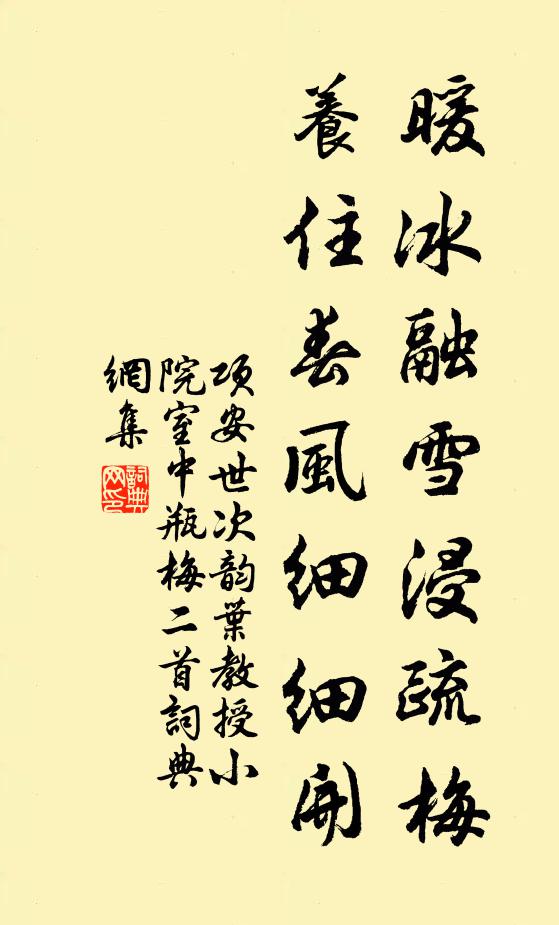 暖冰融雪浸疏梅
養住春風細細開
項安世次韵葉教授小
院室中瓶梅二首詞典
網集
詞典
网印